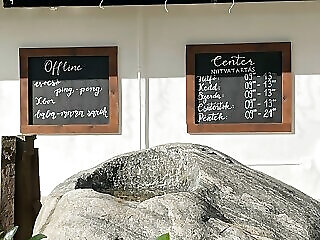 Offline
csocsó
ping-pong
Xbox
baba-mama sarok
Center
NYITVATARTÁS
Hétfő: 09-13-
Kedd: 09-13-
Szerda: 09-13-
Csütörtök: 09-13-
Péntek: 09-21-